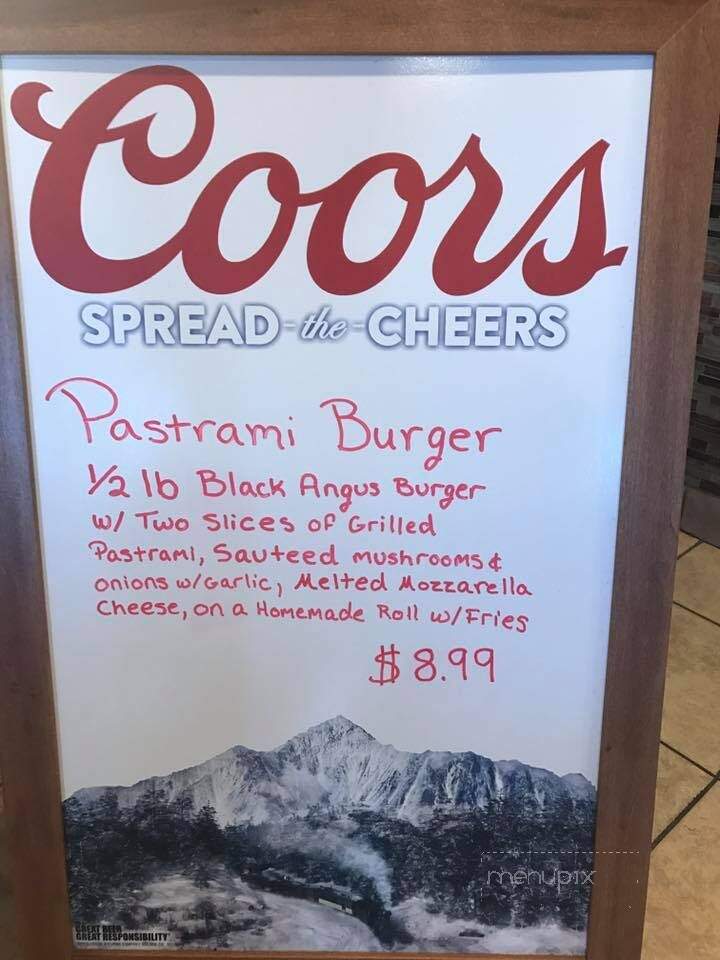 Coors
SPREAD-the-CHEERS
Pastrami Burger
1/2 lb Black Angus Burger
w/ Two Slices of Grilled
Pastrami, Sauteed mushrooms &
onions w/Garlic, Melted Mozzarella
Cheese, on a Homemade Roll w/Fries
$8.99
menupix
GREAT BEER
GREAT RESPONSIBILITY